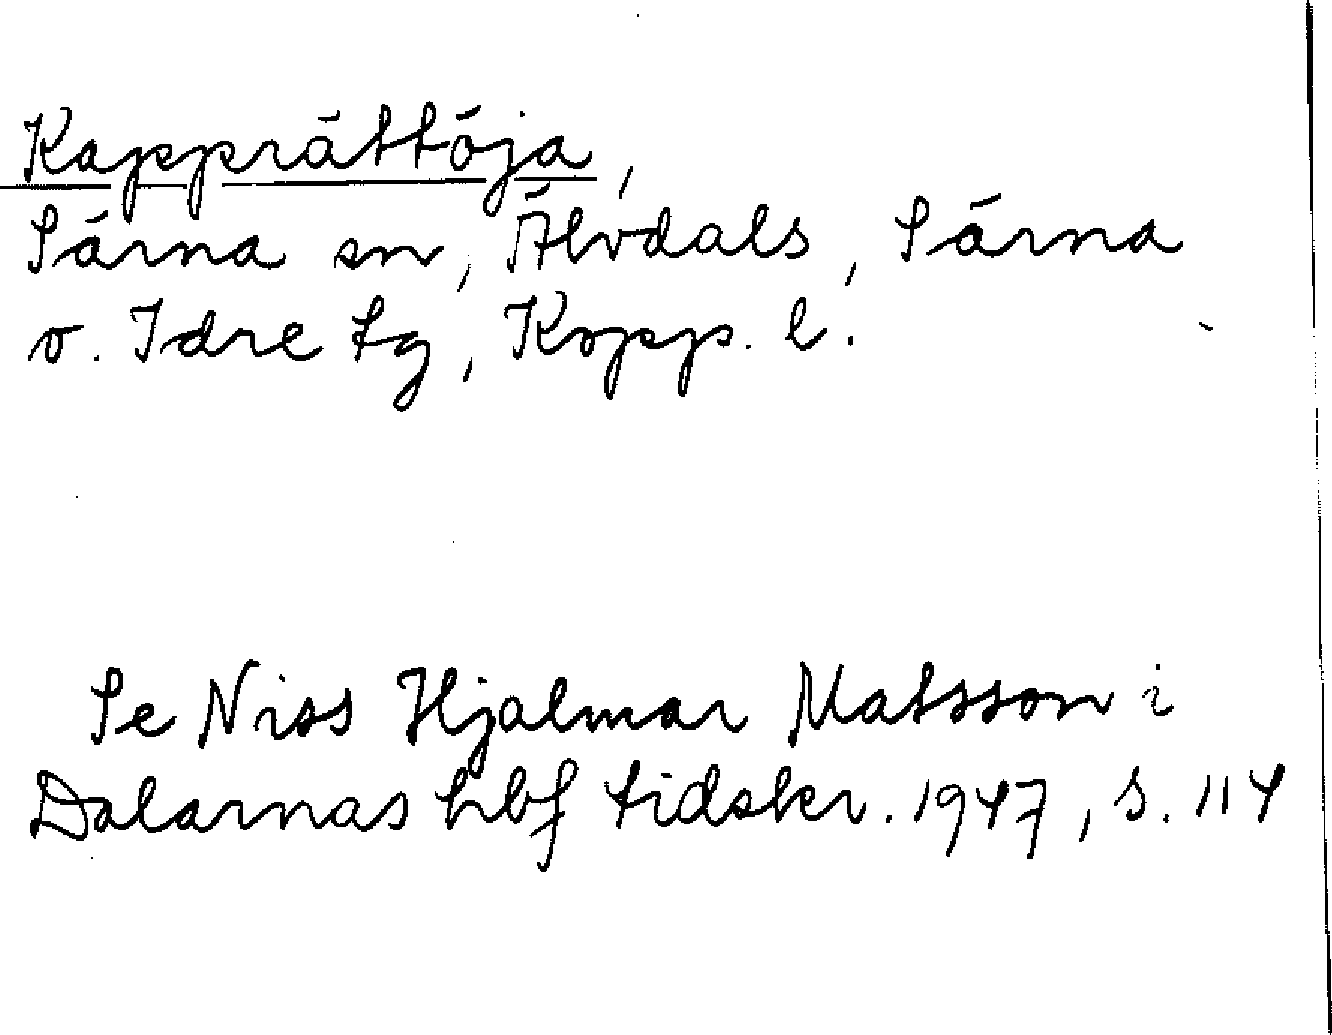 Kapprättöja,
Särna sn, Älvdals, Särna
o. Idre tg, Kopp. l.
Se Niss Hjalmar Matsson i
Dalarnas hbf tidskr. 1947, s. 114